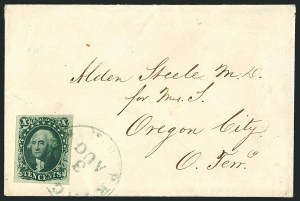 Alden Steele M.D.
for Mrs. S.
Oregon City
O. Terry
X X
TEN CENTS
AUG
3